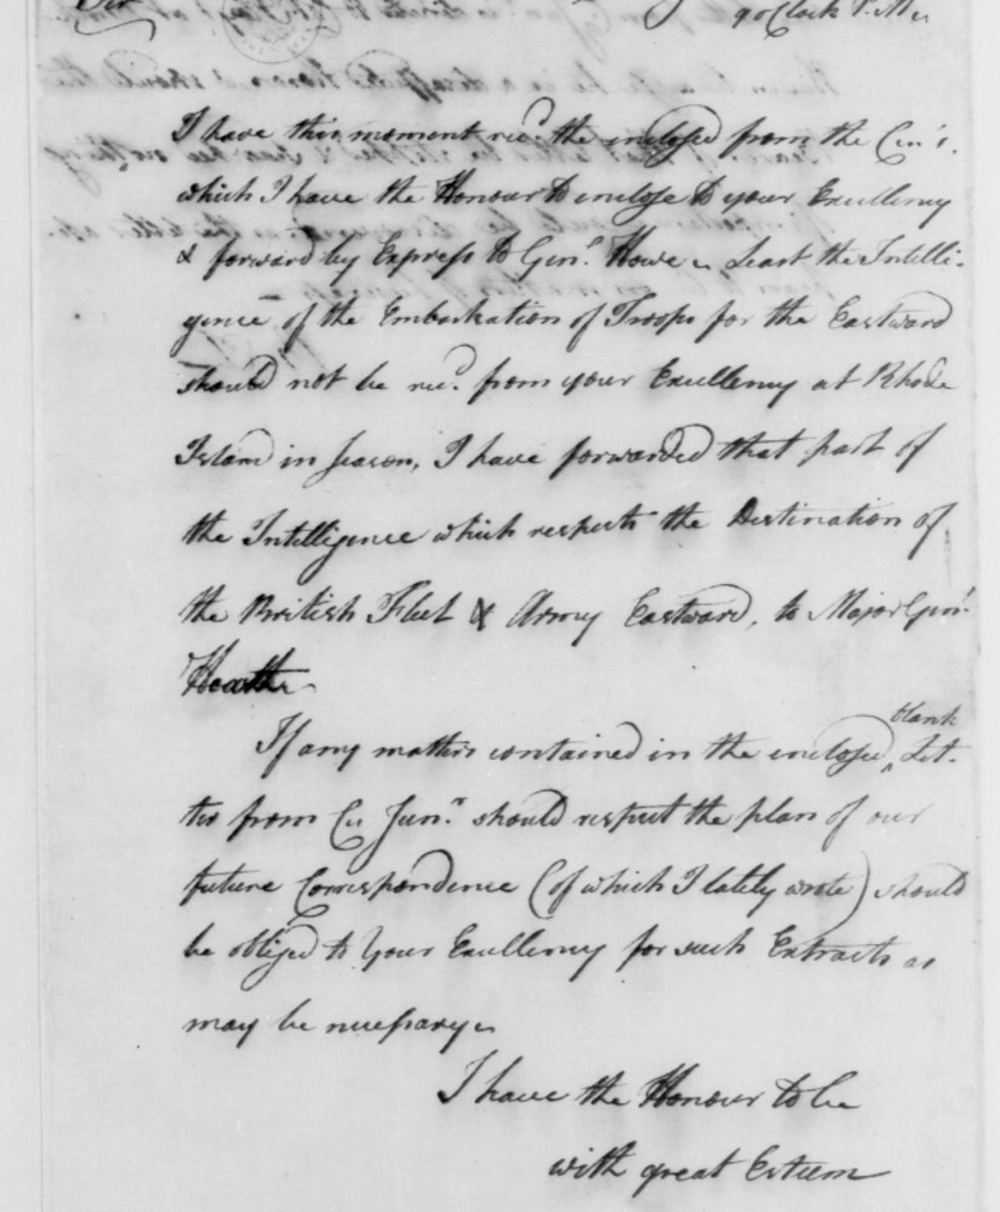 Sir
9 oClock P.M.
I have this moment recd. the enclosed from the Cu's.
which I have the Honour to enclose to your Excellency
& forward by Express to Genl. Howe. Least the Intelli-
gence of the Embarkation of Troops for the Eastward
should not be recd. from your Excellency at Rhode
Island in season, I have forwarded that part of
the Intelligence which respects the Destination of
the British Fleet & Army Eastward, to Major Genl.
Heath.
If any matters contained in the enclosed blank Let-
ter from Cu Junr. should respect the plan of our
future Correspondence (of which I lately wrote) should
be obliged to Your Excellency for such Extracts as
may be necessary.
I have the Honour to be
with great Esteem